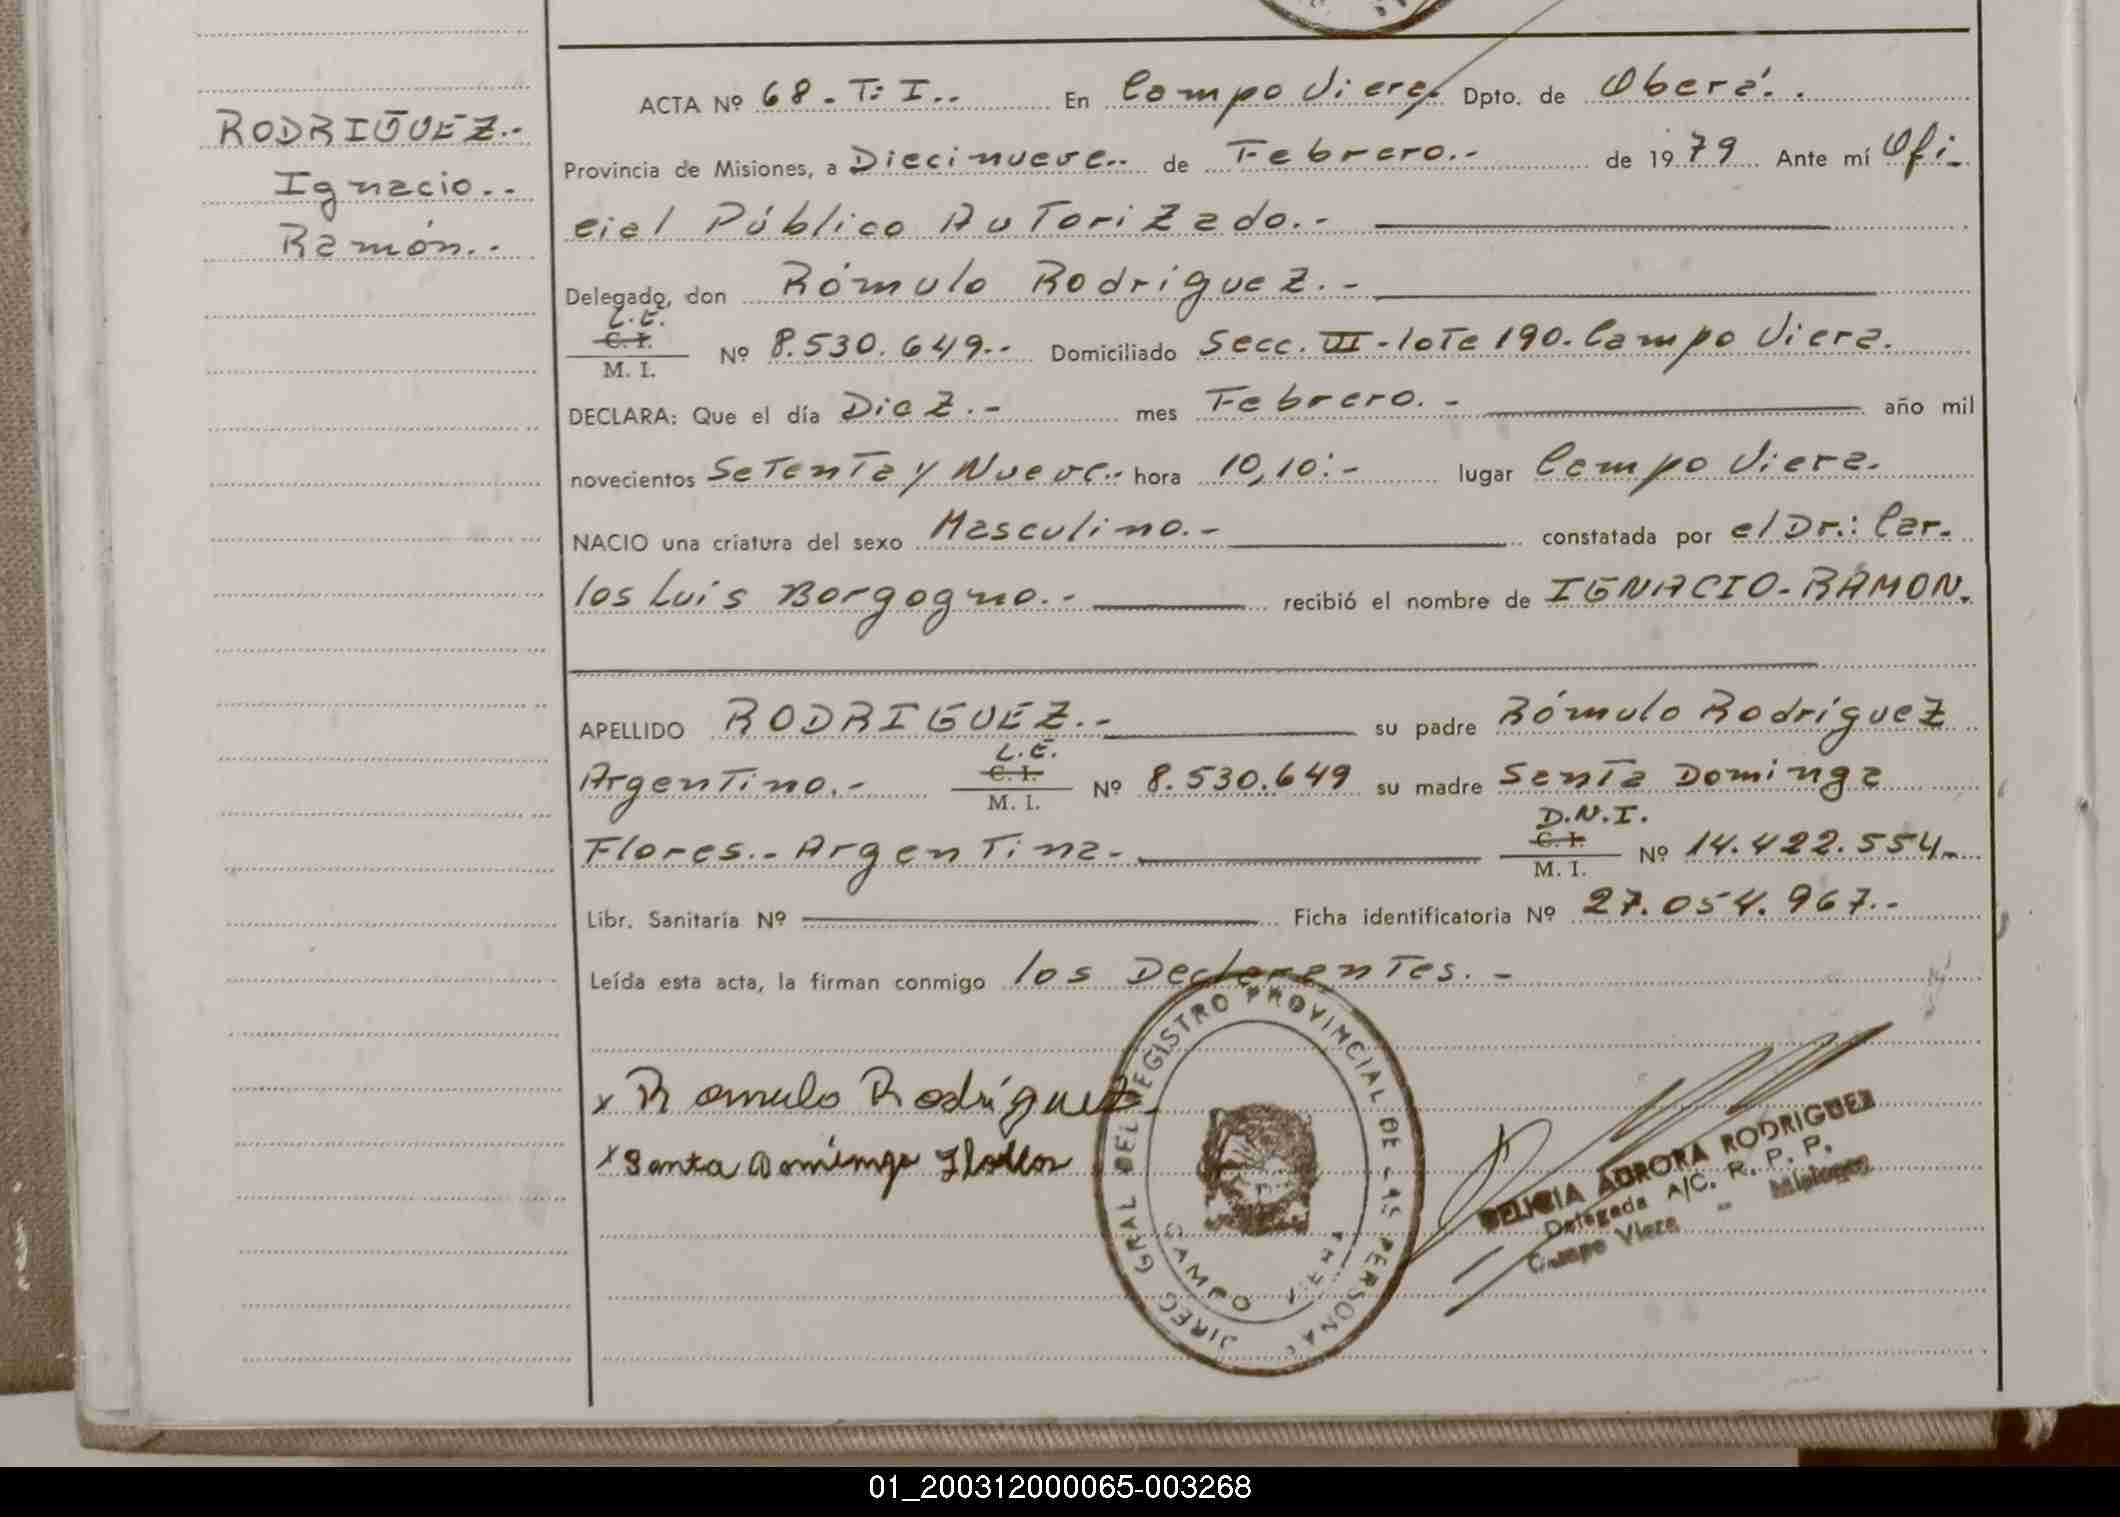 RODRIGUEZ.-
Ignacio..
Ramón..
ACTA Nº 68.T:I.. En Campo Viera. Dpto. de Oberá..
Provincia de Misiones, a Diecinueve.. de Febrero.- de 1979 Ante mí Ofi-
cial Público Autorizado.-
Delegado, don Rómulo Rodríguez.-
L.E.
C. I.
M. I. Nº 8.530.649.- Domiciliado Secc. VII-lote 190. Campo Viera.
DECLARA: Que el día Diez.- mes Febrero.- año mil
novecientos Setenta y Nueve.- hora 10,10:- lugar Campo Viera.
NACIO una criatura del sexo Masculino.- constatada por el Dr.: Car-
los Luis Borgogno.- recibió el nombre de IGNACIO-RAMON.
APELLIDO RODRIGUEZ.- su padre Rómulo Rodríguez
L.E.
Argentino.- C. I. M. I. Nº 8.530.649 su madre Santa Dominga
D.N.I.
Flores.- Argentina- C. I. M. I. Nº 14.422.554.-
Libr. Sanitaria Nº Ficha identificatoria Nº 27.054.967.-
Leída esta acta, la firman conmigo los Declarantes.-
x Romulo Rodríguez
x Santa Dominga
DIREC GRAL DEL REGISTRO PROVINCIAL DE LAS PERSONAS
CAMPO VIERA
DELICIA AURORA RODRIGUEZ
Delegada A/C. R. P. P.
Campo Viera - Misiones
01_200312000065-003268